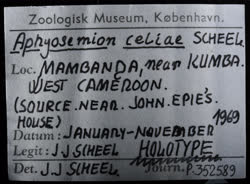 Zoologisk Museum, København.
Aphyosemion celiae SCHEEL
Loc. MAMBANDA, near KUMBA.
WEST CAMEROON.
(SOURCE. NEAR. JOHN. EPIE'S.
HOUSE) 1969
Datum: JANUARY-NOVEMBER
Legit: J J SCHEEL HOLOTYPE
Det. J J SCHEEL Journ. P. 352589